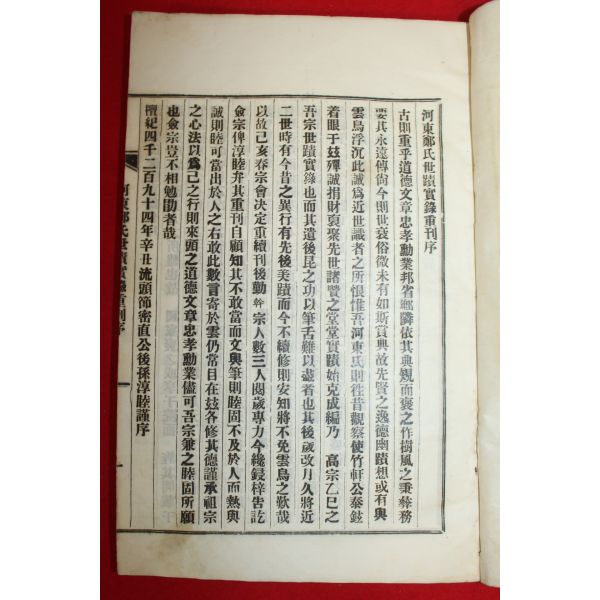 河東鄭氏世蹟實錄重刊序
古則重乎道德文章忠孝勳業邦省鄉隣依其典規而褒之作樹風之秉彝務
要其永遠傳尙今則世衰俗微未有如斯賞典故先賢之逸德幽蹟想或有與
雲鳥浮沉此誠爲近世識者之所恨惟吾河東氏則徃昔觀察使竹軒公泰鉉
着眼于玆殫誠捐財裒聚先世諸賢之堂堂實蹟始克成編乃 高宗乙巳之
吾宗世蹟實錄也而其遺後昆之功以筆舌難以盡者也其後歲改月久將近
二世時有今昔之異行有先後美蹟而今不續修則安知將不免雲鳥之歎哉
以故己亥春宗會决定重續刊後勤幹宗人數三人閱歲專力今纔鋟梓告訖
僉宗俾淳睦弁其重刊自顧知其不敢當而文與筆則睦固不及於人而熱與
誠則睦可當出於人之右敢此數言寄於雲仍常目在玆各修其德謹承祖宗
之心法以爲己之行則來頭之道德文章忠孝勳業儘可吾宗兼之睦固所願
也僉宗豈不相勉勖者哉
檀紀四千二百九十四年辛丑流頭節密直公後孫淳睦謹序
河東鄭氏世蹟實錄重刊序
一